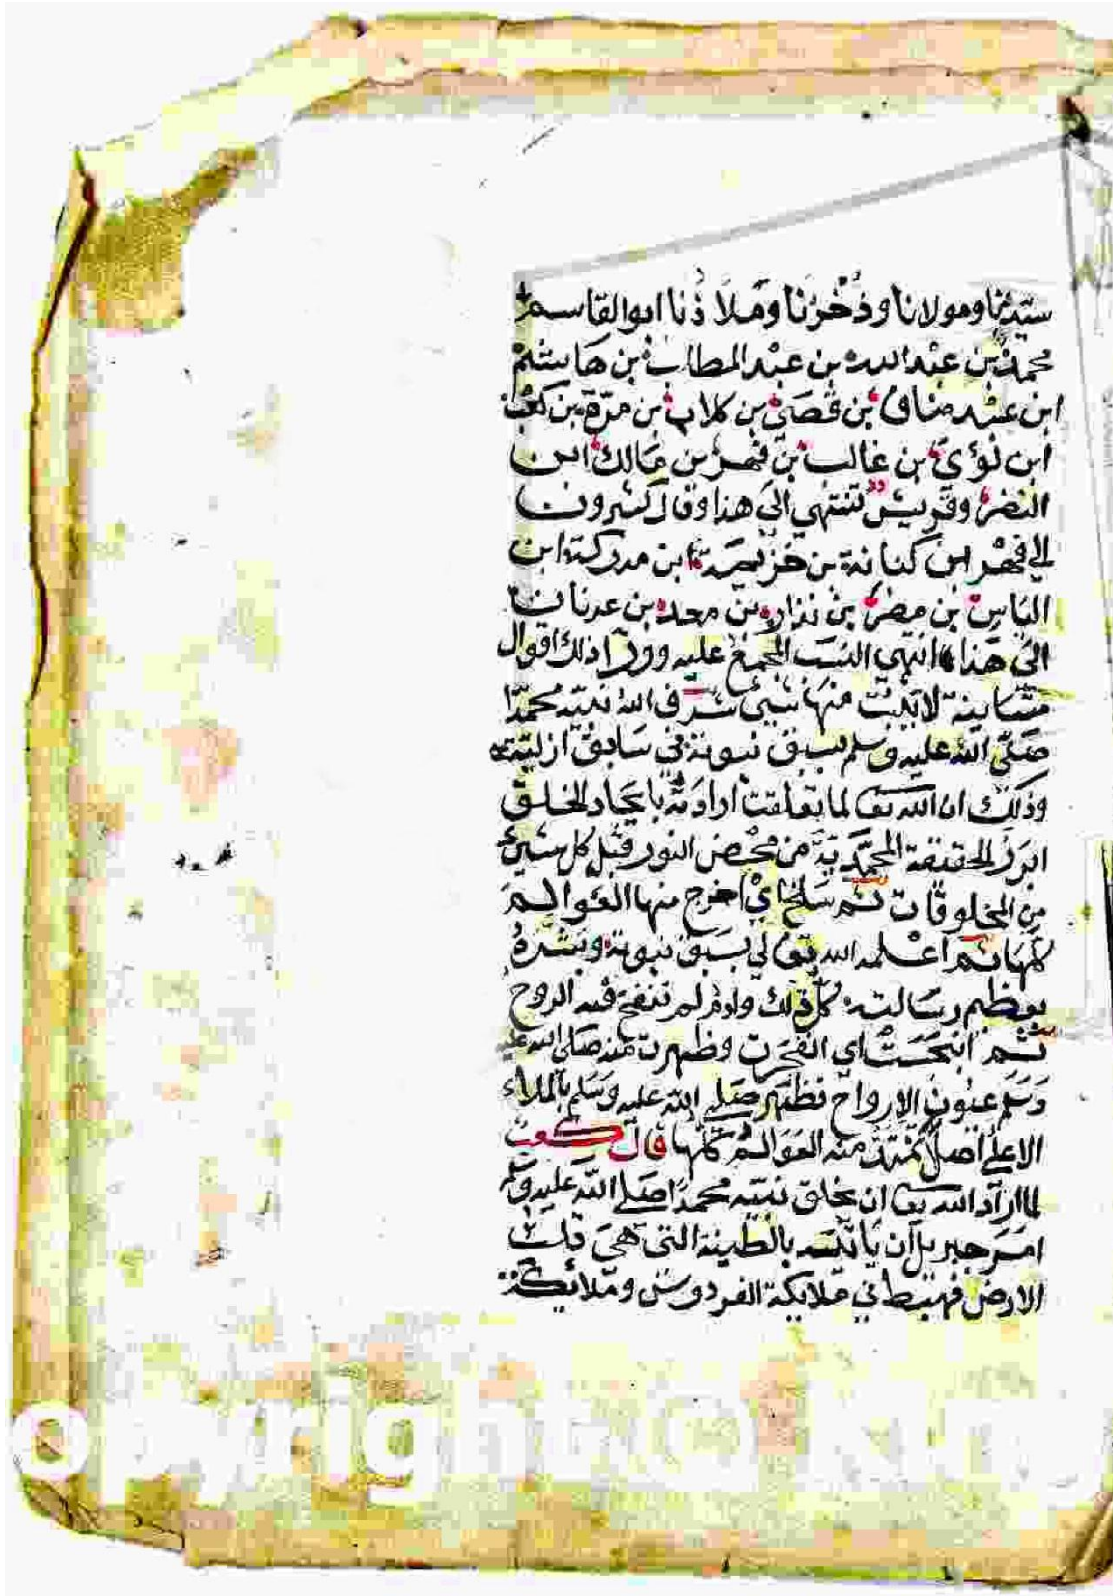 سيدنا ومولانا وذخرنا وملاذنا ابو القاسم
محمد بن عبد الله بن عبد المطلب بن هاشم
ابن عبد مناف بن قصي بن كلاب بن مرة بن كعب
ابن لؤي بن غالب بن فهر بن مالك ابن
النضر وقريش تنتهي الى هذا وقال كثيرون
الي فهر ابن كنانة بن خزيمة ابن مدركة ابن
الياس بن مضر بن نزار بن معد بن عدنان
الى هذا انتهى النسب المجمع عليه وورا ذلك اقوال
متباينة لا يثبت منها شيئ شرف الله نبيه محمدا
صلى الله عليه وسلم بسبق نبوته في سابق ازليته
وذلك ان الله تعا لما تعلقت ارادته بايجاد الخلق
ابرز الحقيقة المحمدية من محض النور قبل كل شيئ
من المخلوقات ثم سلخ اي اخرج منها العوالم
كلها ثم اعلمه الله تعا لي بسبق نبوته وبشره
بعظيم رسالته كل ذلك وادم لم تنفخ فيه الروح
ثم انبجست اي انفجرت وظهرت منه صلى الله عليه
وسلم عيون الارواح فظهر صلى الله عليه وسلم بالملاء
الاعلي اصلا تمتد منه العوالم كلها قال كعب
لما اراد الله تعا ان يخلق نبيه محمدا صلى الله عليه وسلم
امر جبريل ان ياتيه بالطينة التي هي قلب
الارض فهبط في ملايكة الفردوس وملائكة
opyright © King